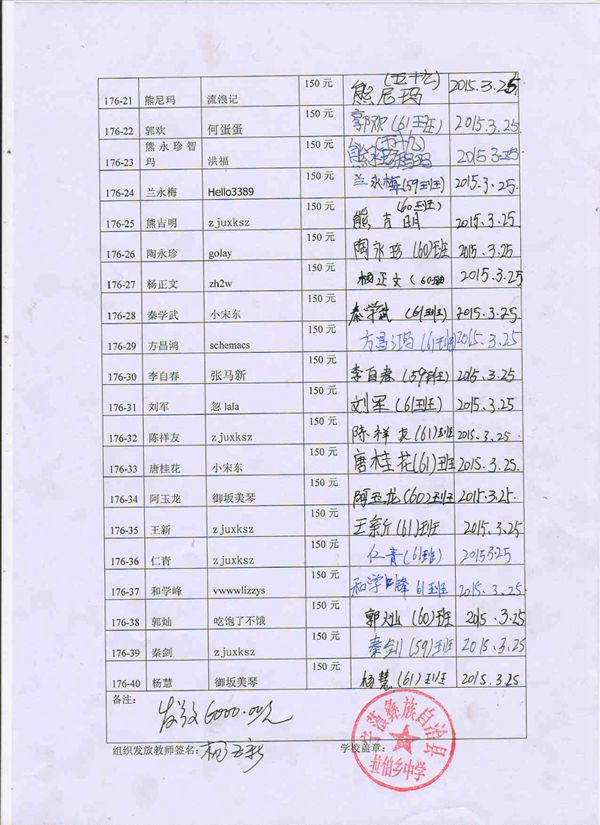 176-21 熊尼玛 流浪记 150 元 熊尼玛(五十九) 2015.3.25
176-22 郭欢 何蛋蛋 150 元 郭欢(61班) 2015.3.25
176-23 熊永珍智玛 洪福 150 元 2015.3.25
176-24 兰永梅 Hello3389 150 元 兰永梅(59班) 2015.3.25
176-25 熊吉明 zjuxksz 150 元 熊吉明(60班) 2015.3.25
176-26 陶永珍 golay 150 元 陶永珍(60)班 2015.3.25
176-27 杨正文 zh2w 150 元 杨正文(60班 2015.3.25
176-28 秦学武 小宋东 150 元 秦学武(61班) 2015.3.25
176-29 方昌鸿 schemacs 150 元 方昌鸿(61班) 2015.3.25
176-30 李自春 张马新 150 元 李自春(59班) 2015.3.25
176-31 刘军 忽 lala 150 元 刘军(61班) 2015.3.25
176-32 陈祥友 zjuxksz 150 元 陈祥友(61)班 2015.3.25
176-33 唐桂花 小宋东 150 元 唐桂花(61)班 2015.3.25
176-34 阿玉龙 御坂美琴 150 元 阿玉龙(60)班 2015.3.25.
176-35 王新 zjuxksz 150 元 王新(61)班 2015.3.25
176-36 仁青 zjuxksz 150 元 仁青(61班) 2015.3.25
176-37 和学峰 vwwwlizzys 150 元 和学峰 61班 2015.3.25
176-38 郭灿 吃饱了不饿 150 元 郭灿(60)班 2015.3.25
176-39 秦剑 zjuxksz 150 元 秦剑(59)班 2015.3.25
176-40 杨慧 御坂美琴 150 元 杨慧(61)班 2015.3.25
备注:
发放6000.00元
组织发放教师签名: 学校盖章:
宁蒗彝族自治县
拉伯乡中学